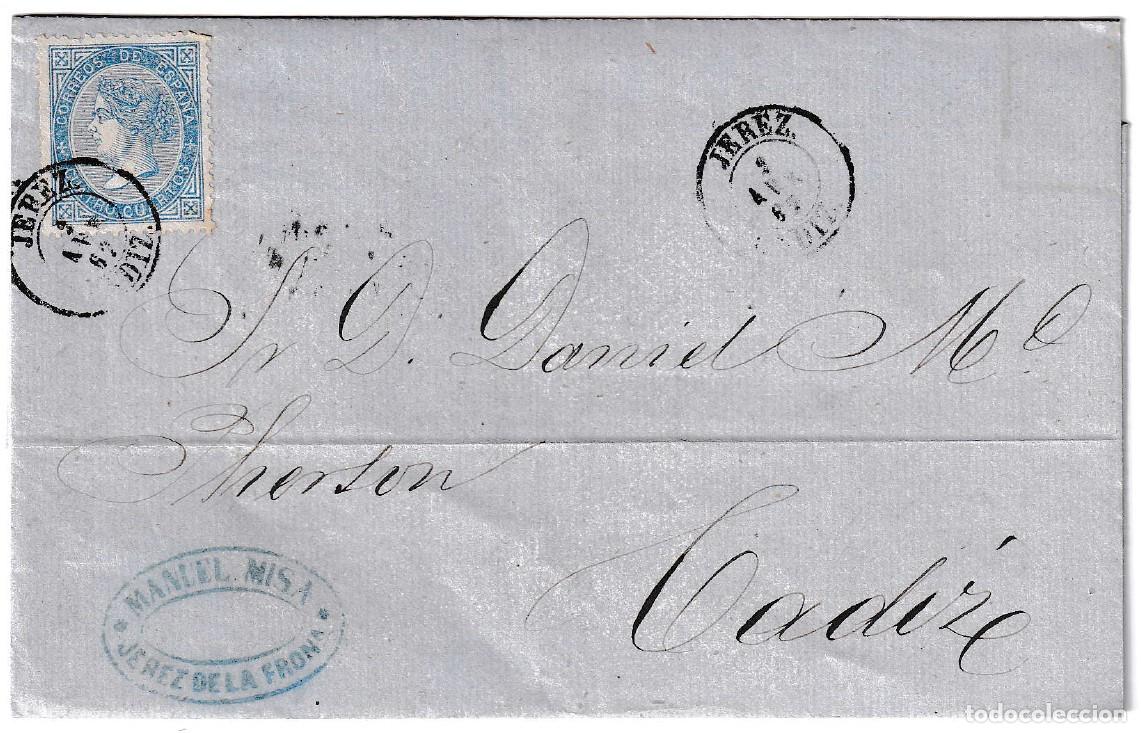 CORREOS DE ESPAÑA
CUATRO CUARTOS
JEREZ.
JEREZ.
Sr D. Daniel Mc
Pherson
Cadiz
MANUEL MISA
JEREZ DE LA FRONA
todocoleccion